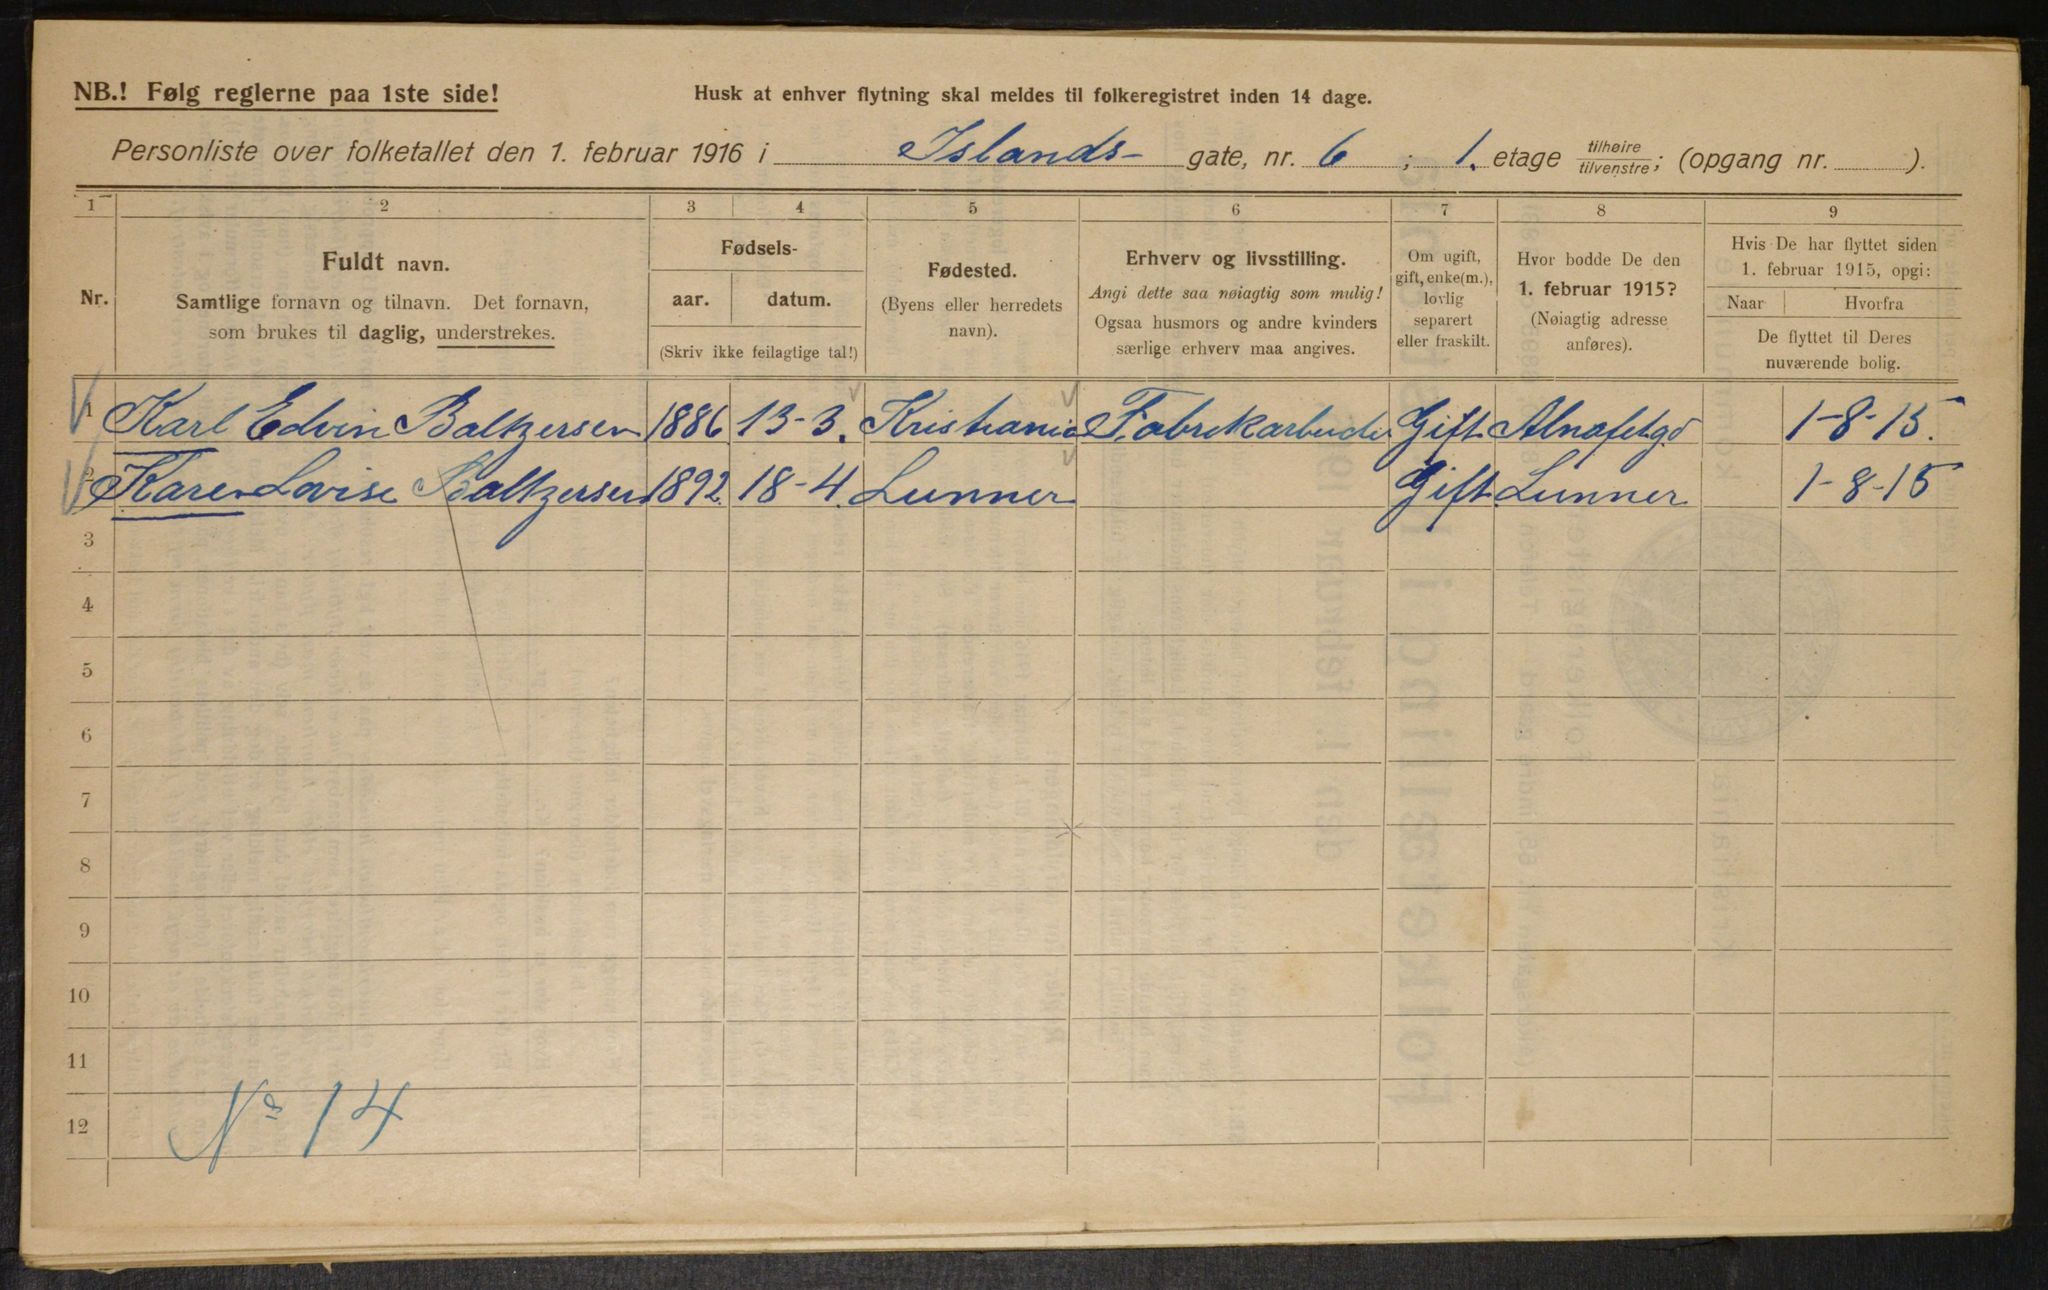 NB.! Følg reglerne paa 1ste side!
Husk at enhver flytning skal meldes til folkeregistret inden 14 dage.
Personliste over folketallet den 1. februar 1916 i Islands- gate, nr. 6 ; 1. etage tilhøire/tilvenstre; (opgang nr. ).
1 2 3 4 5 6 7 8 9
Nr.
Fuldt navn.
Samtlige fornavn og tilnavn. Det fornavn,
som brukes til daglig, understrekes.
Fødsels-
aar. datum.
(Skriv ikke feilagtige tal!)
Fødested.
(Byens eller herredets
navn).
Erhverv og livsstilling.
Angi dette saa nøiagtig som mulig!
Ogsaa husmors og andre kvinders
særlige erhverv maa angives.
Om ugift,
gift, enke(m.),
lovlig
separert
eller fraskilt.
Hvor bodde De den
1. februar 1915?
(Nøiagtig adresse
anføres).
Hvis De har flyttet siden
1. februar 1915, opgi:
Naar Hvorfra
De flyttet til Deres
nuværende bolig.
1 Karl Edvin Baltzersen 1886 13-3. Kristiania Fabrikarbeider Gift Alnafetgd 1-8-15.
2 Karen Lovise Baltzersen 1892. 18-4. Lunner Gift. Lunner 1-8-15
3
4
5
6
7
8
9
10
11
12
No 14